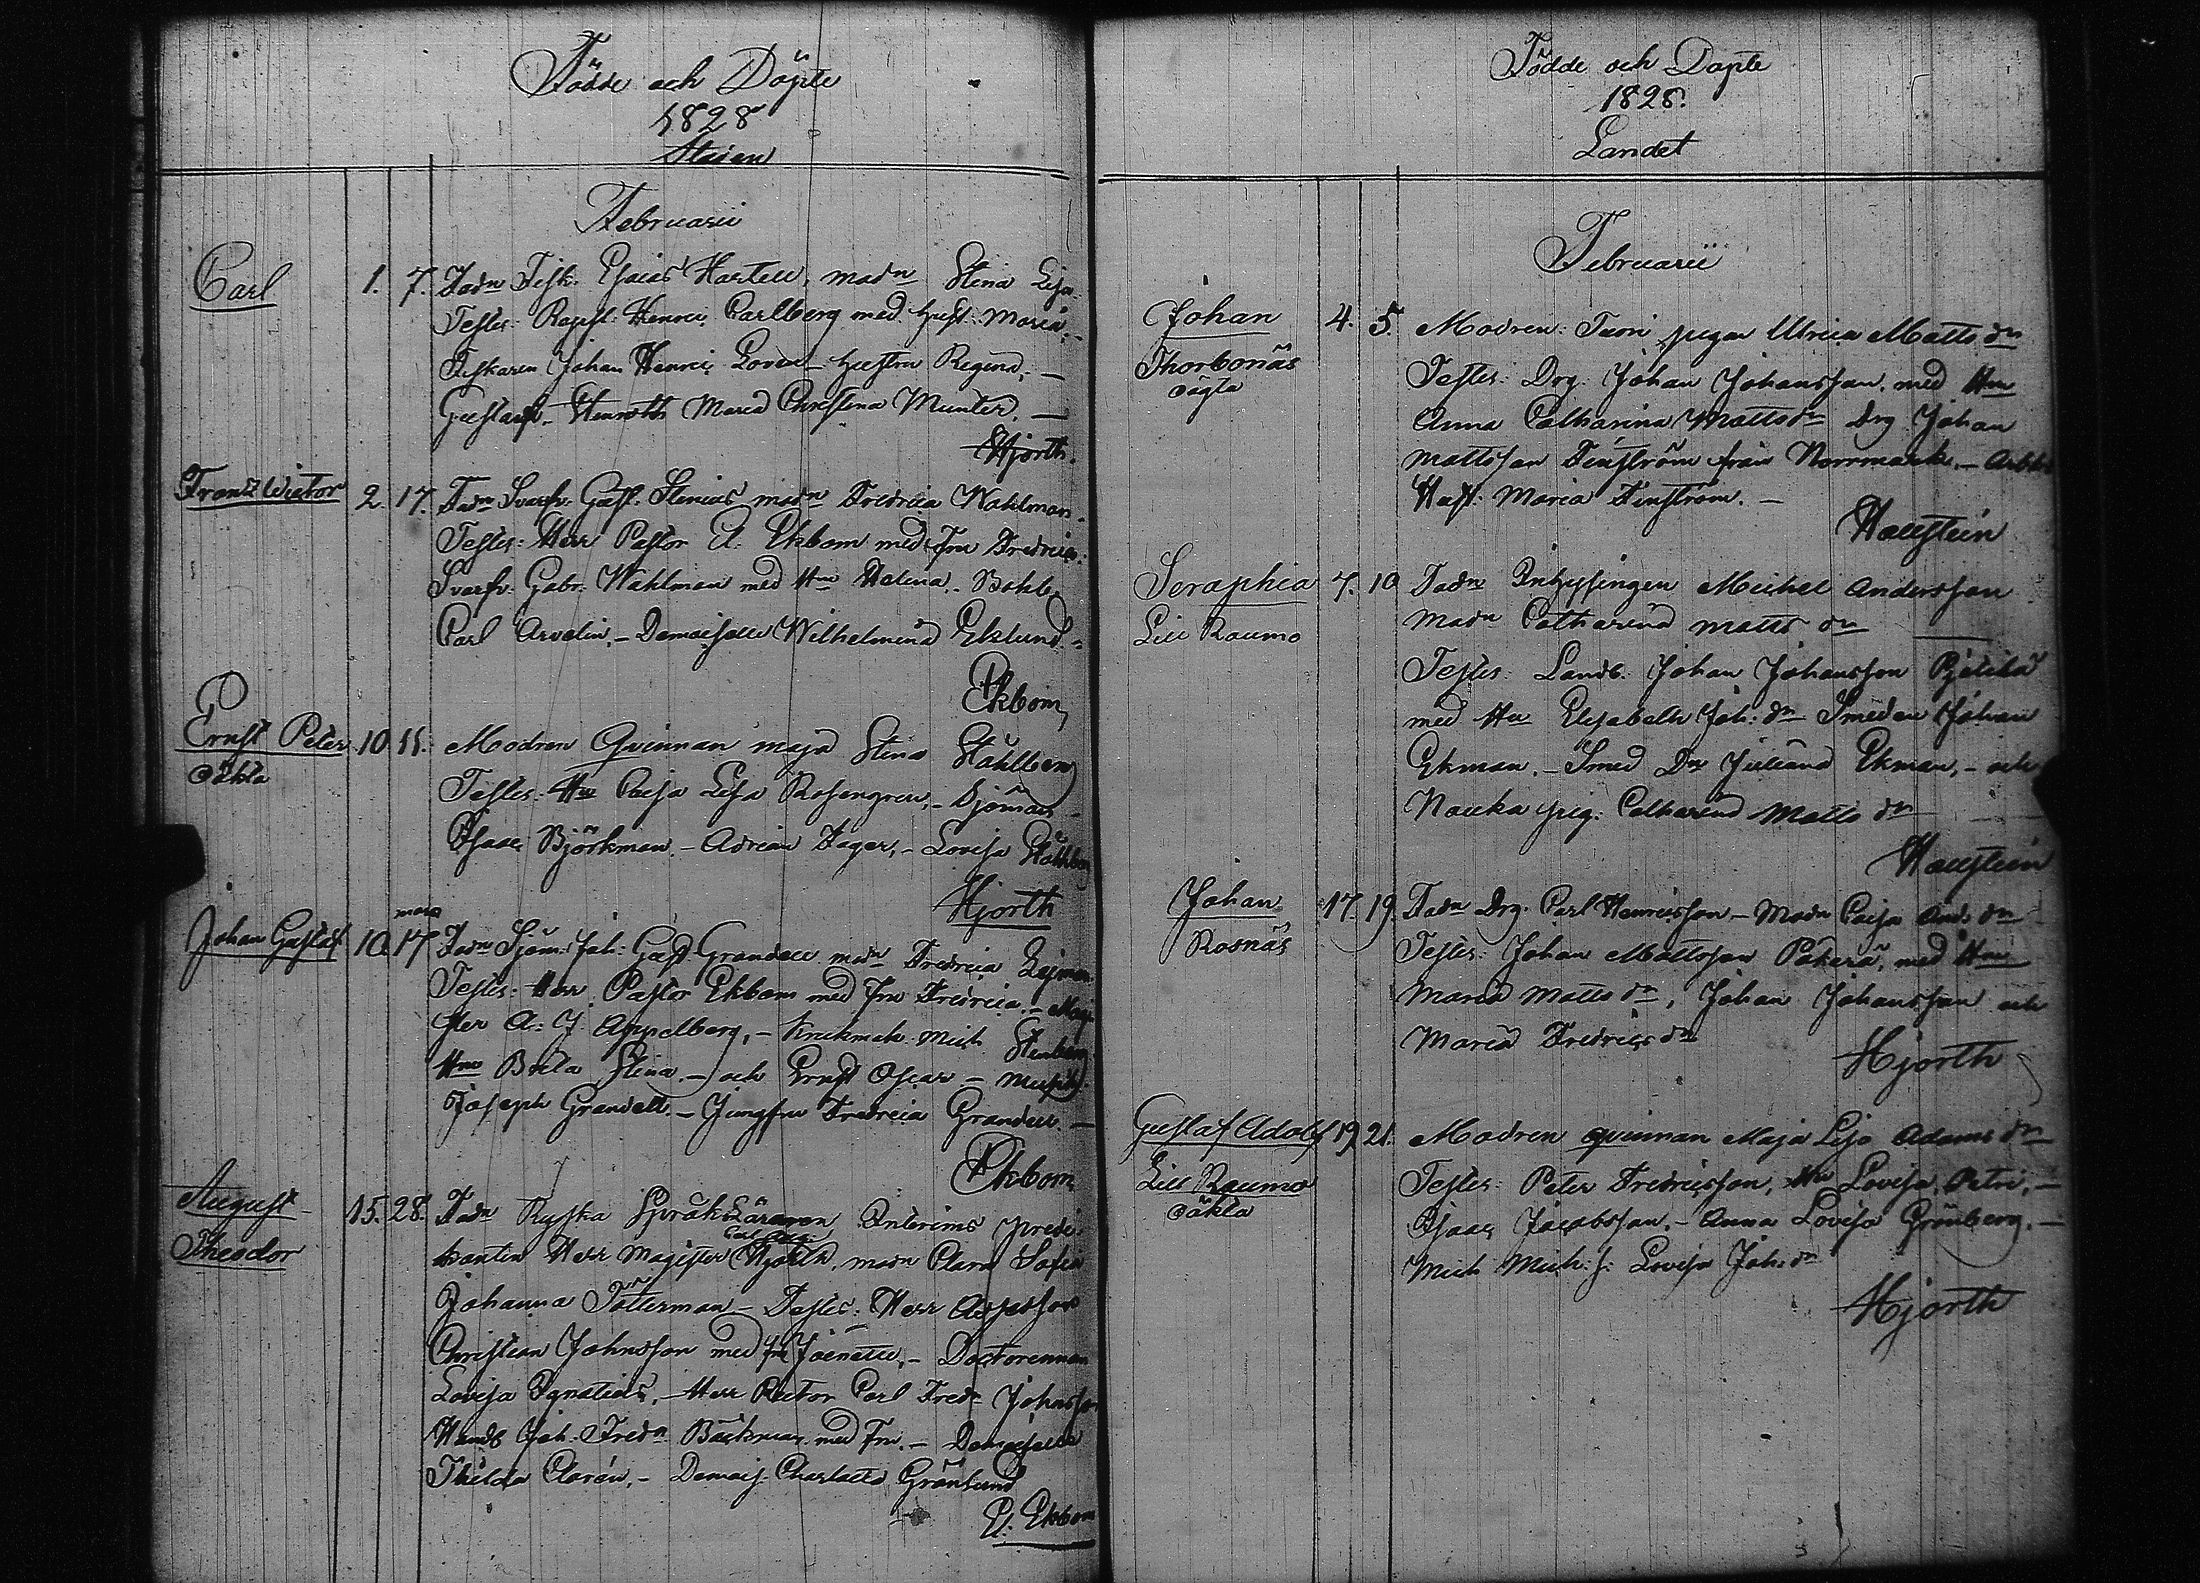 Födde och Döpte
1828
Staden
Februarii
Carl 1. 7. Fadn Fisk. Esaias Hartell, modn Stina Lisa
Testes: Henric Carlberg med Hust. Maria. –
Fiskaren Johan Henric Lovén – hustru Regina, –
Gustaf – Henroth Maria Christina Munter. –
Hjorth.
Frantz Victor 2. 17. Fadn Svarfv. Gust. Stenius modn Fredrica Wahlman.
Testes: Herr Pastor A. Ekbom med Fru Fredrica.
Svarfv. Gabr. Wahlman med Hu Helena. –
Carl Arvelin, – Demoiselle Wilhelmina Eklund –
Ekbom
Ernst Peter 10 11. Modren Qvinnan Maja Stina Ståhlberg
oäkta
Testes: Hu Caisa Lisa Rosengren, – Sjöman
Isaac Björkman. – Adrian Fager, – Lovisa
Hjorth
mars
Johan Gustaf 10. 17 Fadn Sjöm. Joh: Gust Grandell modn Fredrica
Testes: Herr Pastor Ekbom med Fru Fredrica. – Magi
ster A. J. Appelberg, – Mich Stenberg
Hu Brita Stina. – och Ernst Oscar –
Joseph Grandell. – Jungfru Fredrica Grandell. –
Ekbom
August 15. 28. Fadn Ryska Språk Läraren Interims predi
Theodor
Carl Aug:
kanten Herr Magister Hjorth, modn Clara Sofia
Johanna Tötterman – Testes: Herr Assessor
Christian Johnsson med fru Jeanette, – Doctorinnan
Lovisa Ignatius, – Herr Rector Carl Fredr Johnsson
Handl Joh. Fredr Bäckman med Fru. – Demoiselle
Thilda Clarén, – Demois. Charlotta Grönlund
A. Ekbom
Födde och Döpte
1828.
Landet
Februarii
Johan 4. 5. Modren: pigan Ulrica Matts dr
Thorbonäs
oägta
Testes: Drg. Johan Johansson, med Hu
Anna Catharina Matts dr Drg Johan
Mattsson Finström från Norrmark. –
Hust. Maria Finström. –
Hallstein
Seraphia 7. 10 Fadn Inhyssingen Michel Andersson
Lill Raumo
modn Catharina Matts dr
Testes: Landb. Johan Johansson
med Hu Elisabeth Joh: dr Smeden Johan
Ekman. – Smed Dr Juliana Ekman, – och
pig: Catharina Matts dr
Hallstein
Johan 17. 19. Fadn Drg. Carl Henricsson – Modn Caisa And: dr
Rosnäs
Testes: Johan Mattsson med Hu
Maria Matts dr, Johan Johansson och
Maria Fredrics dr
Hjorth
Gustaf Adolf 19 21. Modren qvinnan Maja Lisa Adams dr
Lill Raumo
oäkta
Testes: Peter Fredricsson, Hu Lovisa Petri, –
Isaac Jacobsson. – Anna Lovisa Grönberg. –
Mich Mich: s: Lovisa Joh: dr
Hjorth